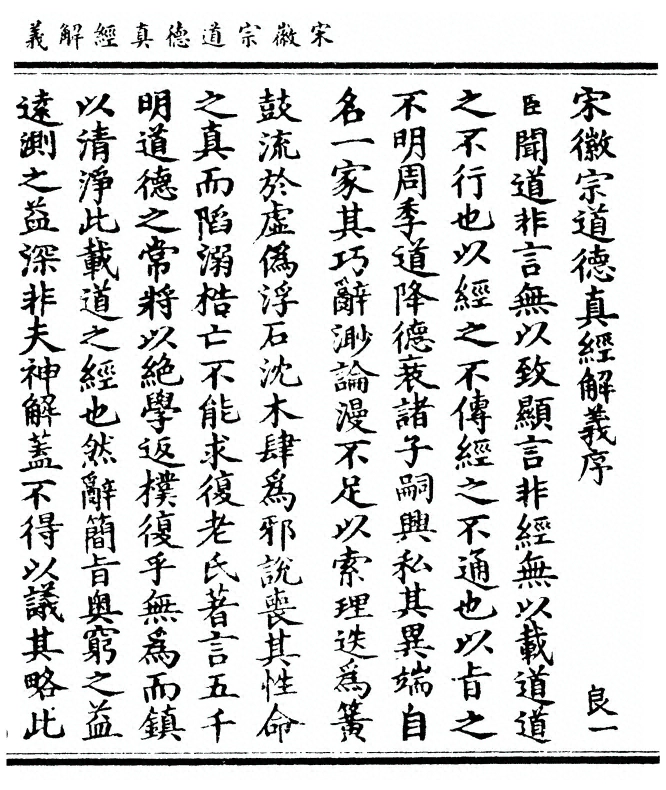 宋徽宗道德真經解義
宋徽宗道德真經解義序
良一
臣聞道非言無以致顯言非經無以載道道
之不行也以經之不傳經之不通也以旨之
不明周季道降德衰諸子嗣興私其異端自
名一家其巧辭渺論漫不足以索理迭為簧
鼓流於虛偽浮石沈木肆為邪說喪其性命
之真而陷溺梏亡不能求復老氏著言五千
明道德之常將以絕學返樸復乎無為而鎮
以清淨此載道之經也然辭簡旨奧窮之益
遠測之益深非夫神解蓋不得以議其略此